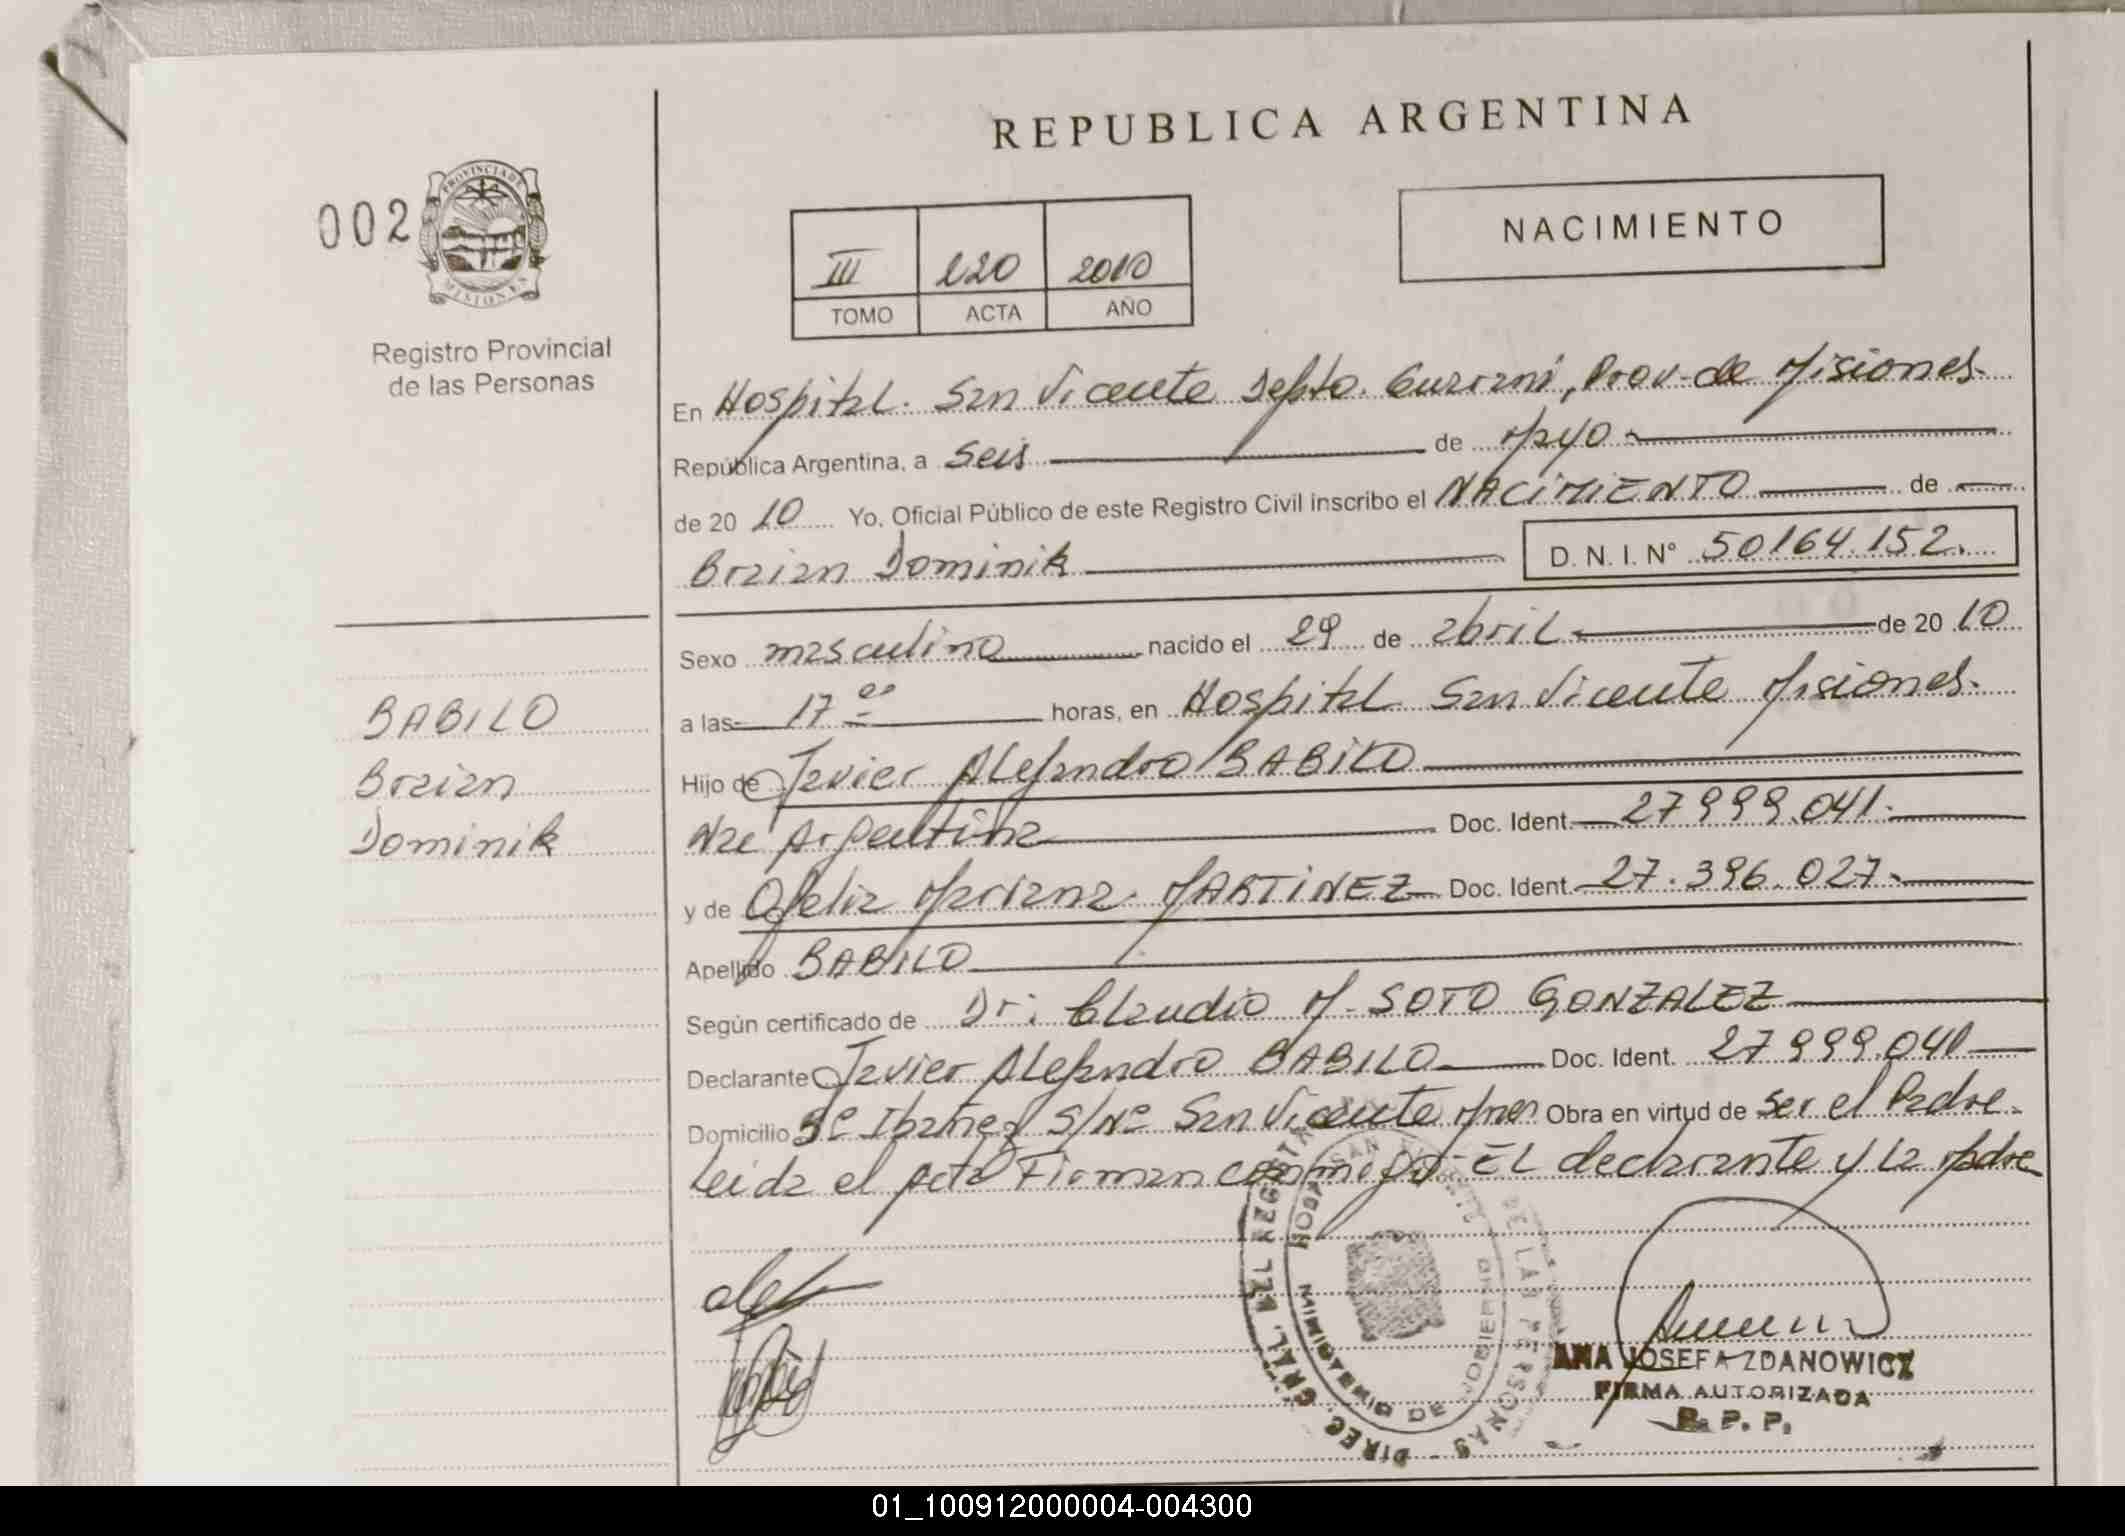 REPUBLICA ARGENTINA
002
PROVINCIA DE
MISIONES
Registro Provincial
de las Personas
NACIMIENTO
III 120 2010
TOMO ACTA AÑO
En Hospital. San Vicente Depto. Guarani, Prov. de Misiones.
República Argentina, a Seis de Mayo
de 2010 Yo, Oficial Público de este Registro Civil inscribo el NACIMIENTO de
Braian Dominik D. N. I. N° 50164.152.
Sexo masculino nacido el 29 de abril de 2010
a las 17 horas, en Hospital San Vicente Misiones.
BABILO
Braian
Dominik
Hijo de Javier Alejandro BABILO
Nac Argentina Doc. Ident. 27999.041.
y de Ofelia Mariana MARTINEZ Doc. Ident. 27.396.027.
Apellido BABILO
Según certificado de Dr. Claudio M. SOTO GONZALEZ
Declarante Javier Alejandro BABILO Doc. Ident. 27999.041
Domicilio Bº Ibañez S/Nº San Vicente Mnes Obra en virtud de ser el Padre.
Leida el Acta Firman conmigo. EL declarante y La Madre
DIREC. GRAL. DEL REGISTRO DE LAS PERSONAS
ANA JOSEFA ZDANOWICZ
FIRMA AUTORIZADA
R. P. P.
01_100912000004-004300